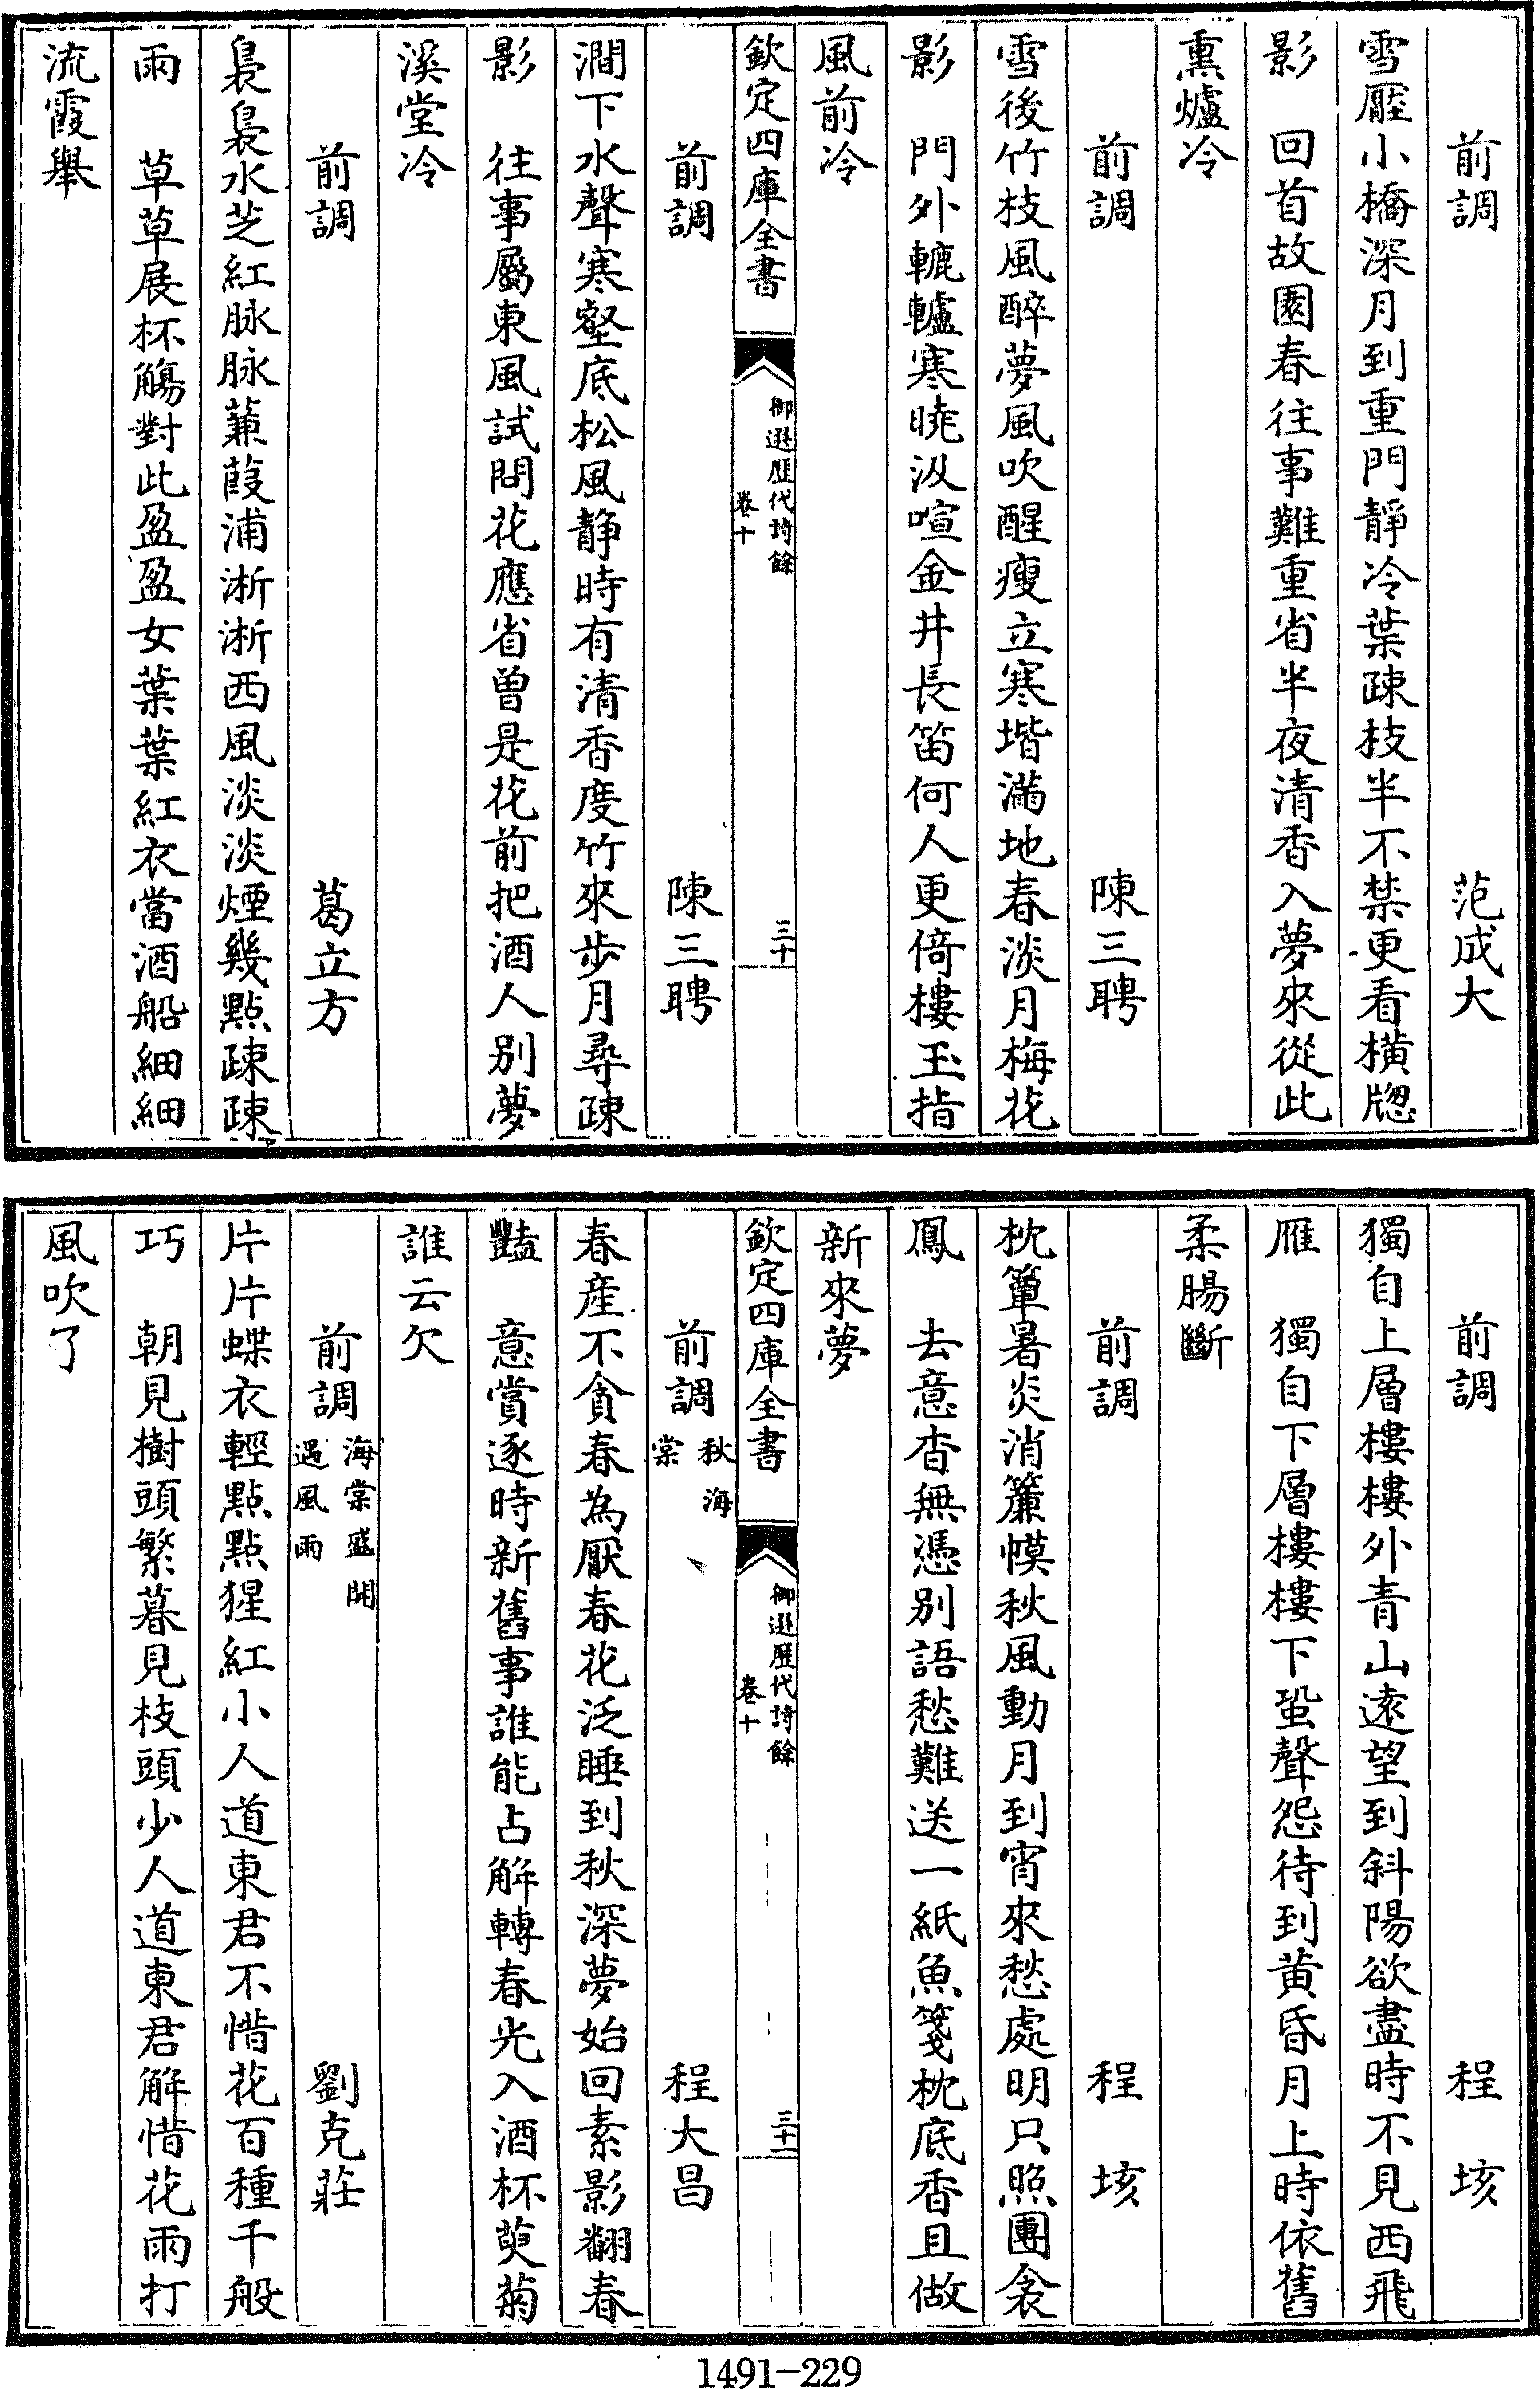 前調　范成大
雪壓小橋深月到重門靜冷葉疎枝半不禁更看橫牕
影　回首故園春往事難重省半夜清香入夢來從此
熏爐冷
前調　陳三聘
雪後竹枝風醉夢風吹醒瘦立寒堦滿地春淡月梅花
影　門外轆轤寒曉汲喧金井長笛何人更倚樓玉指
風前冷
欽定四庫全書
御選歷代詩餘
卷十
三十
前調　陳三聘
澗下水聲寒壑底松風静時有清香度竹來步月尋疎
影　往事屬東風試問花應省曾是花前把酒人别夢
溪堂冷
前調　葛立方
裊裊水芝紅脉脉蒹葭浦淅淅西風淡淡煙幾點疎疎
雨　草草展杯觴對此盈盈女葉葉紅衣當酒船細細
流霞舉
前調　程垓
獨自上層樓樓外青山遠望到斜陽欲盡時不見西飛
雁　獨自下層樓樓下蛩聲怨待到黄昏月上時依舊
柔腸斷
前調　程垓
枕簟暑炎消簾幙秋風動月到宵來愁處明只照團衾
鳳　去意杳無憑别語愁難送一紙魚箋枕底香且做
新來夢
欽定四庫全書
御選歷代詩餘
卷十
三十一
前調　秋海棠　程大昌
春産不貪春為厭春花泛睡到秋深夢始回素影翻春
豔　意賞逐時新舊事誰能占解轉春光入酒杯萸菊
誰云欠
前調　海棠盛開遇風雨　劉克莊
片片蝶衣輕點點猩紅小人道東君不惜花百種千般
巧　朝見樹頭繁暮見枝頭少人道東君解惜花雨打
風吹了
1491-229